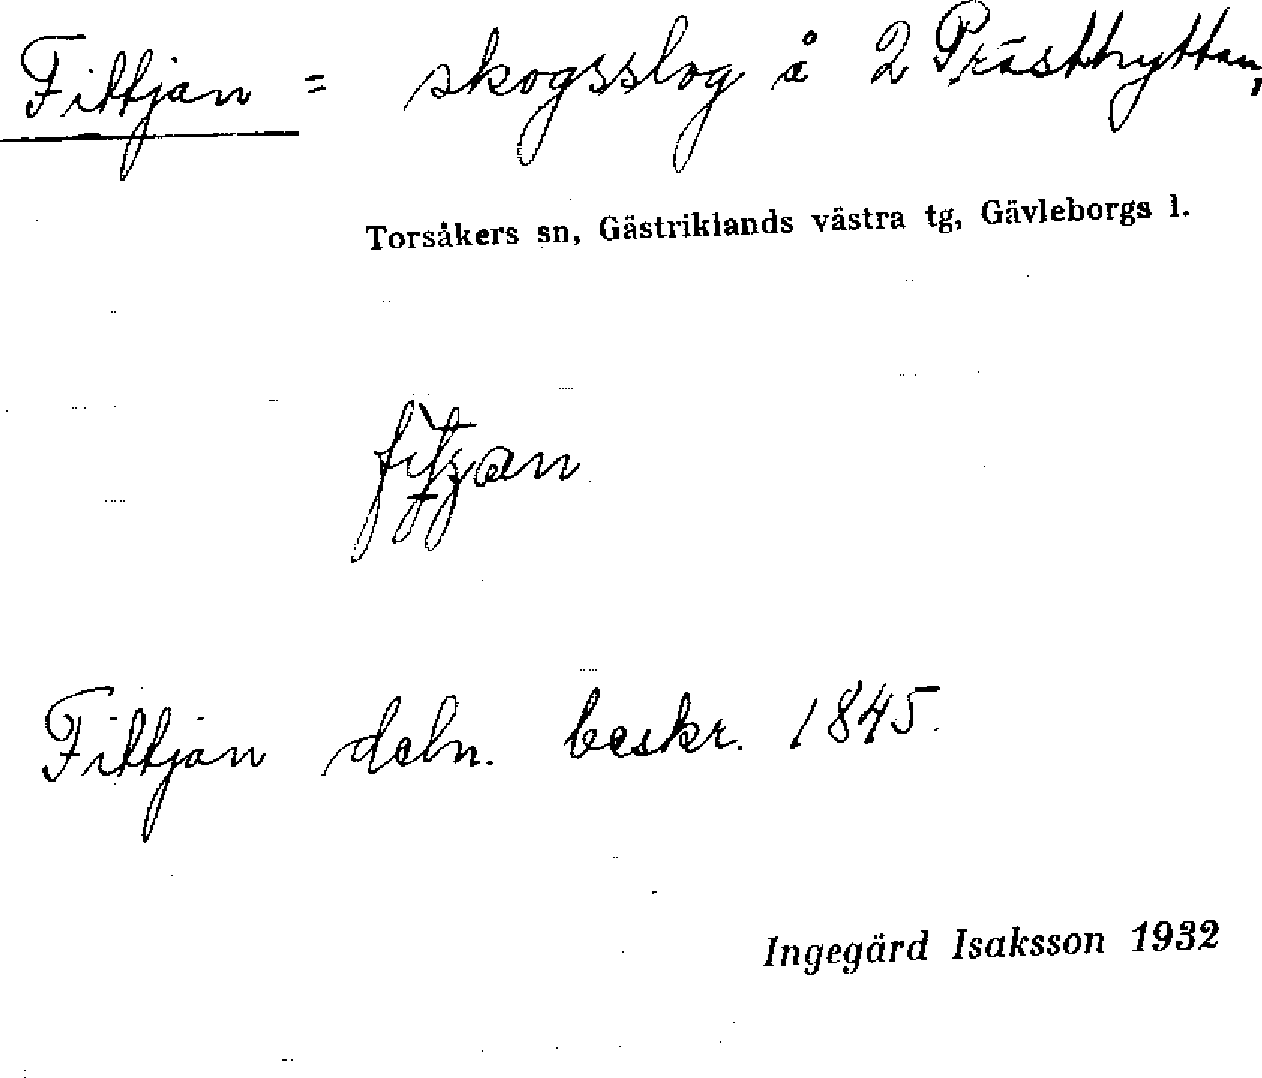 Fittjan = skogsslog å 2 Prästhyttan,
Torsåkers sn, Gästriklands västra tg, Gävleborgs l.
Fittjan deln. beskr. 1845.
Ingegärd Isaksson 1932